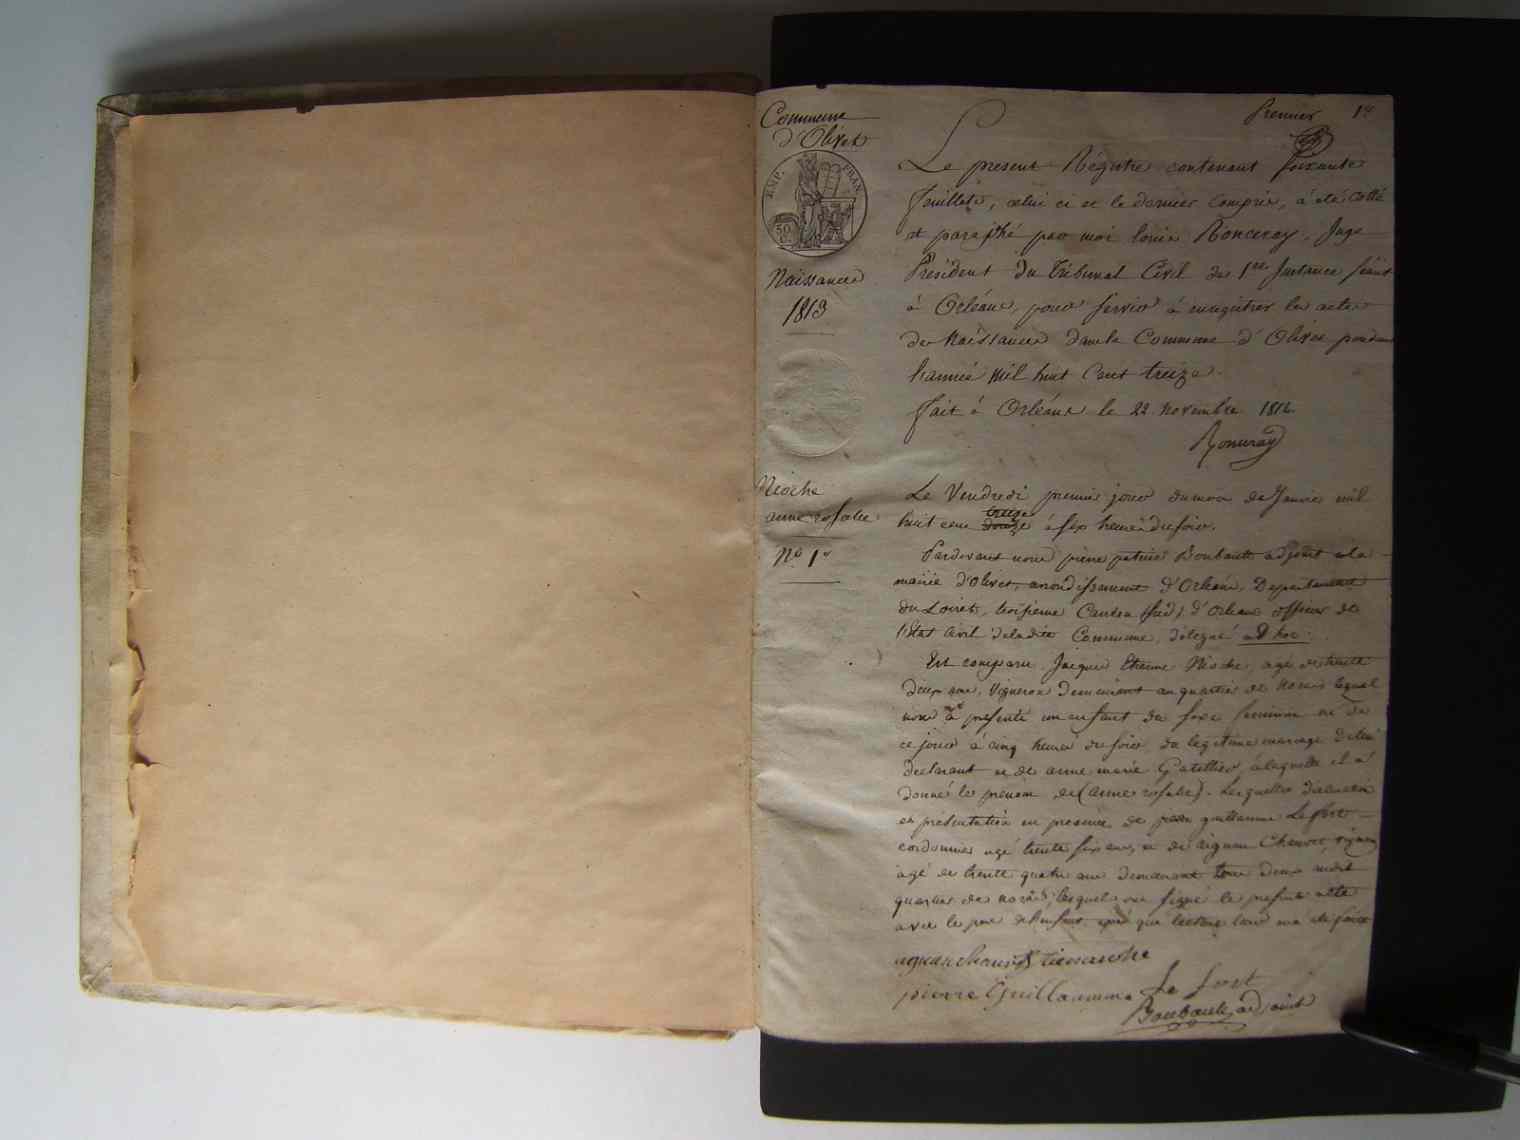 Commune
d'Olivet
EMP. FRAN.
50
C.
Naissances
1813
Premier 1er
Le present Régistre contenant soixante
feuillets, celui ci et le dernier compris, a été cotté
et paraphé par moi louis Ronceray, Juge
Président du Tribunal Civil de 1ere Instance séant
à Orléans, pour servir à enregistrer les actes
de Naissances dans la Commune d'Olivet pendant
l'année Mil huit Cent treize.
fait à Orléans le 22 novembre 1812
Ronceray
Nioche
anne rosalie
No 1er
Le Vendredi premier jour du mois de Janvier mil
huit cent douze treize à six heures du soir.
Pardevant nous pierre Boubault adjoint à la
mairie d'Olivet, arrondissement d'Orléans, Departement
du Loiret, troisieme Canton (sud) d'Orleans officier de
l'Etat civil de ladite Commune, délégué ad hoc.
Est comparu Jacques Etienne Nioche, agé de trente
ans, Vigneron demeurant au quartier de lequel
nous a présenté un enfant du sexe feminin né de
ce jour à cinq heures du soir, du legitime mariage de lui
declarant et de anne marie Gatellier, à laquelle il a
donné le prenom de (anne rosalie). Lesquelles déclaration
et présentation en presence de pierre guillaume Lefort
cordonnier agé trente six ans, et de aignan
agé de trente quatre ans demeurant tous deux audit
quartier de lesquels ont signé le present acte
avec le pere de l'enfant, après que lecture leur en a été faite
pierre Guillaumme Le fort
Boubault, adjoint